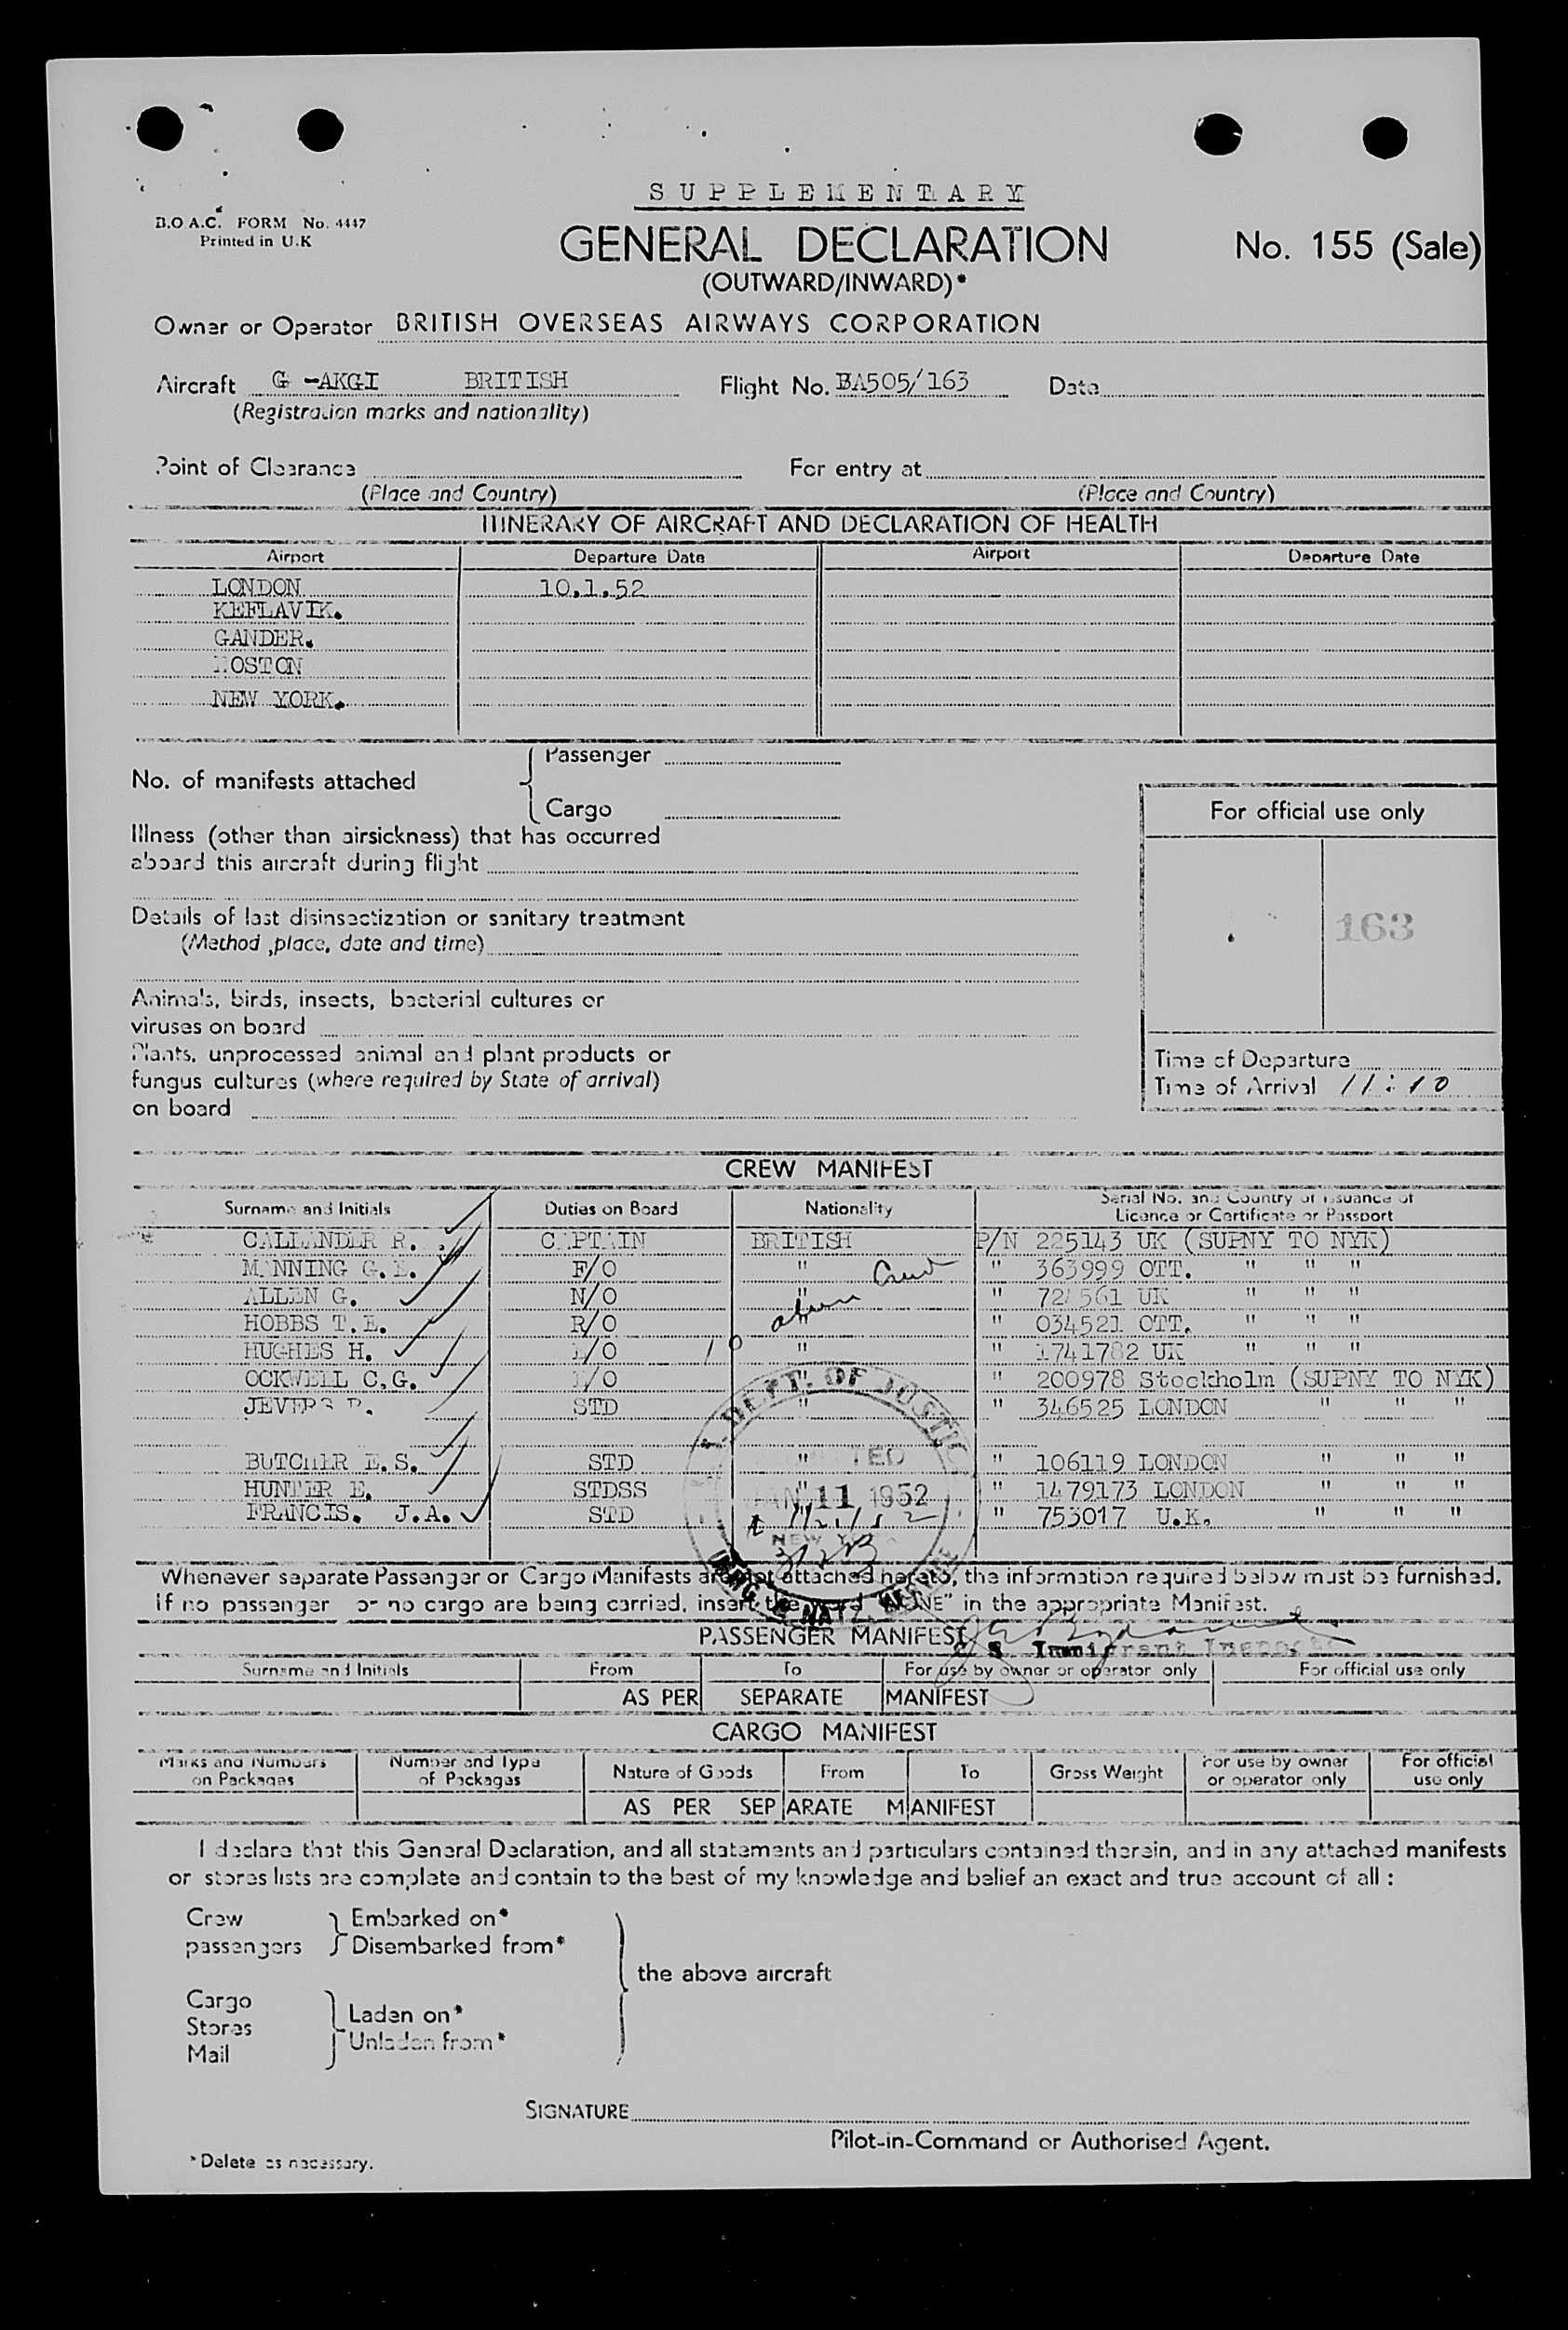 SUPPLEMENTARY
B.O.A.C. FORM No. 4447
Printed in U.K
GENERAL DECLARATION
No. 155 (Sale)
(OUTWARD/INWARD)*
Owner or Operator BRITISH OVERSEAS AIRWAYS CORPORATION
Aircraft G -AKGI BRITISH Flight No. BA505/163 Date
(Registration marks and nationality)
Point of Clearance For entry at
(Place and Country) (Place and Country)
ITINERARY OF AIRCRAFT AND DECLARATION OF HEALTH
Airport Departure Date Airport Departure Date
LONDON 10.1.52
KEFLAVIK.
GANDER.
BOSTON
NEW YORK.
No. of manifests attached { Passenger
Cargo
For official use only
Illness (other than airsickness) that has occurred
aboard this aircraft during flight
163
Details of last disinsectization or sanitary treatment
(Method ,place, date and time)
Animals, birds, insects, bacterial cultures or
viruses on board
Plants, unprocessed animal and plant products or
fungus cultures (where required by State of arrival)
on board
Time of Departure
Time of Arrival 11:10
CREW MANIFEST
Surname and Initials Duties on Board Nationality Serial No. and Country of issuance of Licence or Certificate or Passport
CALLANDER R. CAPTAIN BRITISH P/N 225143 UK (SUPNY TO NYK)
MANNING G.E. F/O " " 363999 OTT. " " "
ALLEN G. N/O " " 561 UK " " "
HOBBS T.E. R/O " " 034521 OTT. " " "
HUGHES H. /O " " 1741782 UK " " "
OCKWELL C.G. /O " " 200978 Stockholm (SUPNY TO NYK)
JEVERS STD " " 346525 LONDON " " "
BUTCHER E.S. STD " " 106119 LONDON " " "
HUNTER E. STDSS " " 1479173 LONDON " " "
FRANCIS. J.A. STD " " 753017 U.K. " " "
10 alien Crew
DEPT. OF JUSTICE
JAN 11 1952
NEW YORK
Whenever separate Passenger or Cargo Manifests are not attached hereto, the information required below must be furnished.
If no passenger or no cargo are being carried, insert the word "NONE" in the appropriate Manifest.
PASSENGER MANIFEST
S. Immigrant Inspector
Surname and Initials From To For use by owner or operator only For official use only
AS PER SEPARATE MANIFEST
CARGO MANIFEST
Marks and Numbers on Packages Number and Type of Packages Nature of Goods From To Gross Weight For use by owner or operator only For official use only
AS PER SEPARATE MANIFEST
I declare that this General Declaration, and all statements and particulars contained therein, and in any attached manifests
or stores lists are complete and contain to the best of my knowledge and belief an exact and true account of all :
Crew } Embarked on*
passengers Disembarked from*
the above aircraft
Cargo
Stores } Laden on*
Mail Unladen from*
SIGNATURE
Pilot-in-Command or Authorised Agent.
*Delete as necessary.